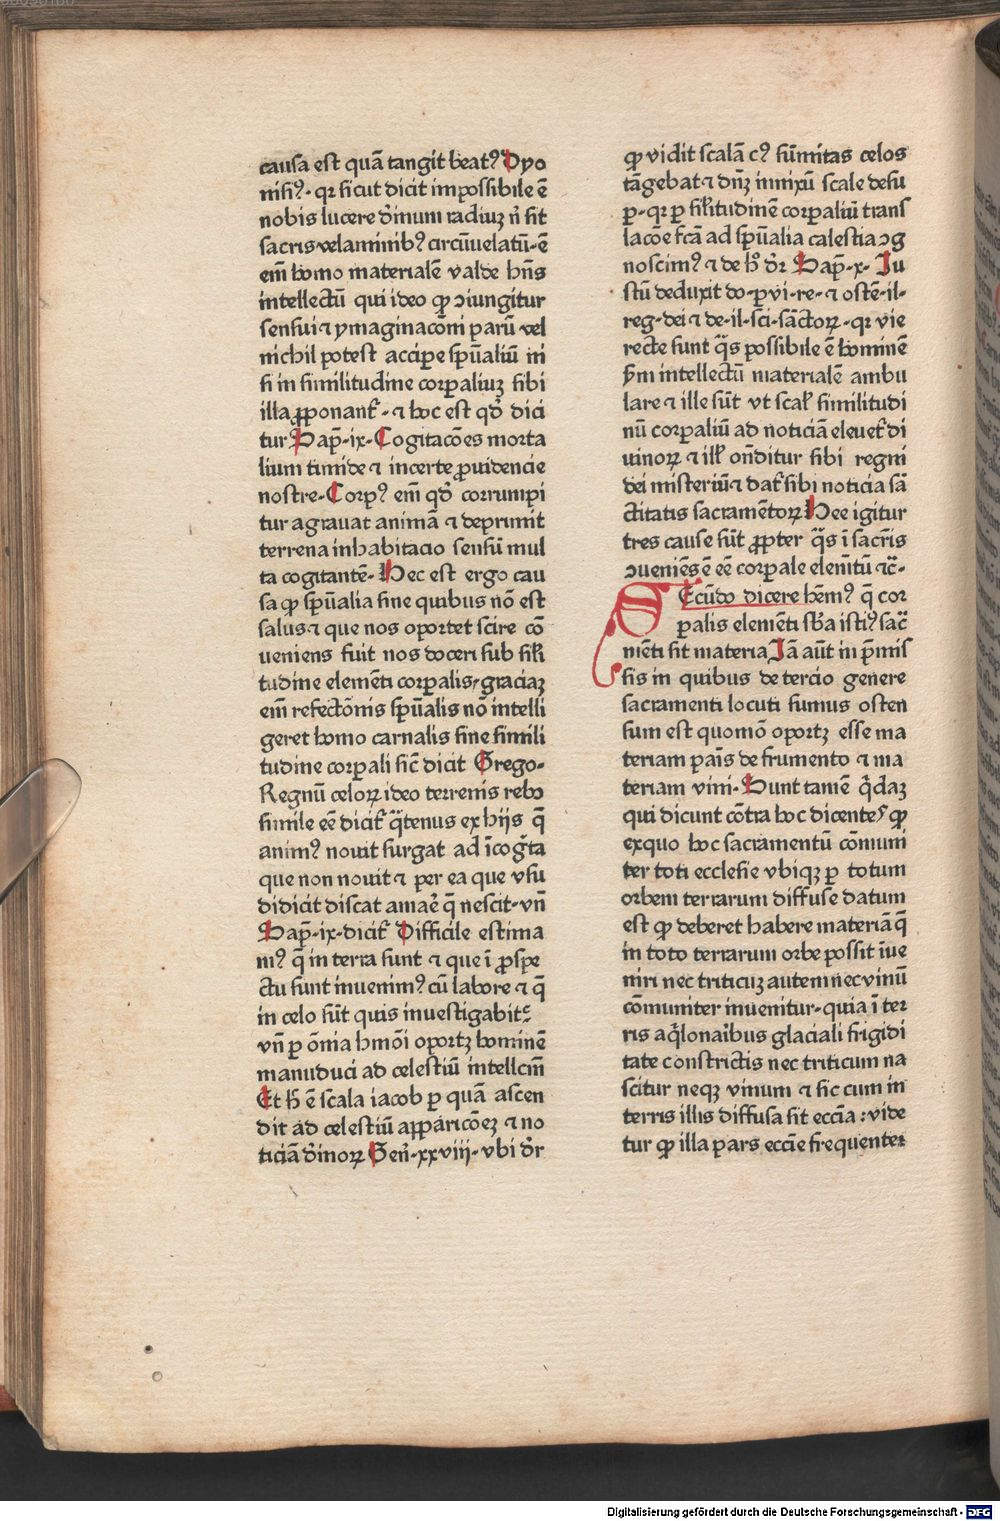 causa est quā tangit beatꝰ Dyo
nisiꝰ· qꝛ sicut dicit impossibile ē
nobis lucere diuinum radiuꝫ nisi sit
sacris velaminibꝰ circūuelatū·ē
em̄ homo materialē valde hn̄s
intellectū qui ideo ꝙ ꝯiungitur
sensui ⁊ ymaginacōni parū vel
nichil potest accipe spūaliū ni
si in similitudine corꝑaliuꝫ sibi
illa ꝓponant᷑· ⁊ hoc est qd̛ dici
tur Sap̄·ix·Cogitacōes morta
lium timide ⁊ incerte ꝓuidencie
nostre·Corpꝰ em̄ qd̛ corrumpi
tur agrauat animā ⁊ deprimit
terrena inhabitacio sensū mul
ta cogitantē· Hec est ergo cau
sa ꝙ spūalia sine quibus nō est
salus ⁊ que nos oportet scire cō
ueniens fuit nos doceri sub sili
tudine elemēti corꝑalis·graciaꝫ
em̄ refectōnis spūalis nō intelli
geret homo carnalis sine simili
tudine corꝑali sic̄ dicit Grego·
Regnū celoꝝ ideo terrenis rebꝰ
simile eē dicit᷑ q̄tenus ex hijs q̄
animꝰ nouit surgat ad īcog̛ta
que non nouit ⁊ per ea que vsu
didicit discat amare q̄ nescit·vn̄
Sap̄·ix·dicit᷑ Difficile estima
mꝰ q̄ in terra sunt ⁊ que ī ꝓspe
ctu sunt inuenimꝰ cū labore ⁊ q̄
in celo sūt quis inuestigabit
vn̄ ꝑ ōnia hmōi oportꝫ hominē
manuduci ad celestiū intellcm̄
Et h̄ ē scala iacob ꝑ quā ascen
dit ad celestiū appāricōeꝫ ⁊ no
ticiā diuinoꝝ Gen̄·xxviij·vbi dr̄
ꝙ vidit scalā cꝰ sūmitas celos
tāgebat ⁊ dn̄ꝫ innixū scale desu
ꝑ·qꝛ ꝑ silitudinē corꝑaliū trans
lacōe fcā ad spūalia calestia ꝯg
noscimꝰ ⁊ de hͦ dr̄ Sap̄·x· Iu
stū deduxit do·ꝑ vi·re·⁊ ostē·il·
reg·dei ⁊ de·il·sci·sāctoꝝ·qꝛ vie
recte sunt q̄s possibile ē hominē
ẜm intellectū materialē ambu
lare ⁊ ille sūt vt scal̛ similitudi
nū corꝑaliū ad noticiā eleuet᷑ di
uinoꝝ ⁊ ill̛ on̄ditur sibi regni
dei misteriū ⁊ dat᷑ sibi noticia sā
ctitatis sacramētoꝝ Hee igitur
tres cause sūt ꝓpter q̄s ī sacr̄is
ꝯueniēs ē eē corꝑale elem̄tū ⁊c̄·
SEcūdo dicere hēmꝰ q̄ cor
ꝑalis elemēti sb̄a istiꝰ sac̄
mēti sit materia Iā aūt in p̄mis
sis in quibus de tercio genere
sacramenti locuti sumus osten
sum est quomō oportꝫ esse ma
teriam pāis de frumento ⁊ ma
teriam vini· Sunt tamē q̇daꝫ
qui dicunt cōtra hoc dicentes ꝙ
exquo hoc sacramentū cōmuni
ter toti ecclesie vbiqꝫ ꝑ totum
orbem terrarum diffuse datum
est ꝙ deberet habere materiā q̄
in toto terrarum orbe possit īue
niri nec triticuꝫ autem nec vinū
cōmuniter inuenitur·quia ī ter
ris aq̇lonaribus glaciali frigidi
tate constrictis nec triticum na
scitur neqꝫ vinum ⁊ sic cum in
terris illis diffusa sit ecc̄ia : vide
tur ꝙ illa pars ecc̄ie frequenter
Digitalisierung gefördert durch die Deutsche Forschungsgemeinschaft - DFG